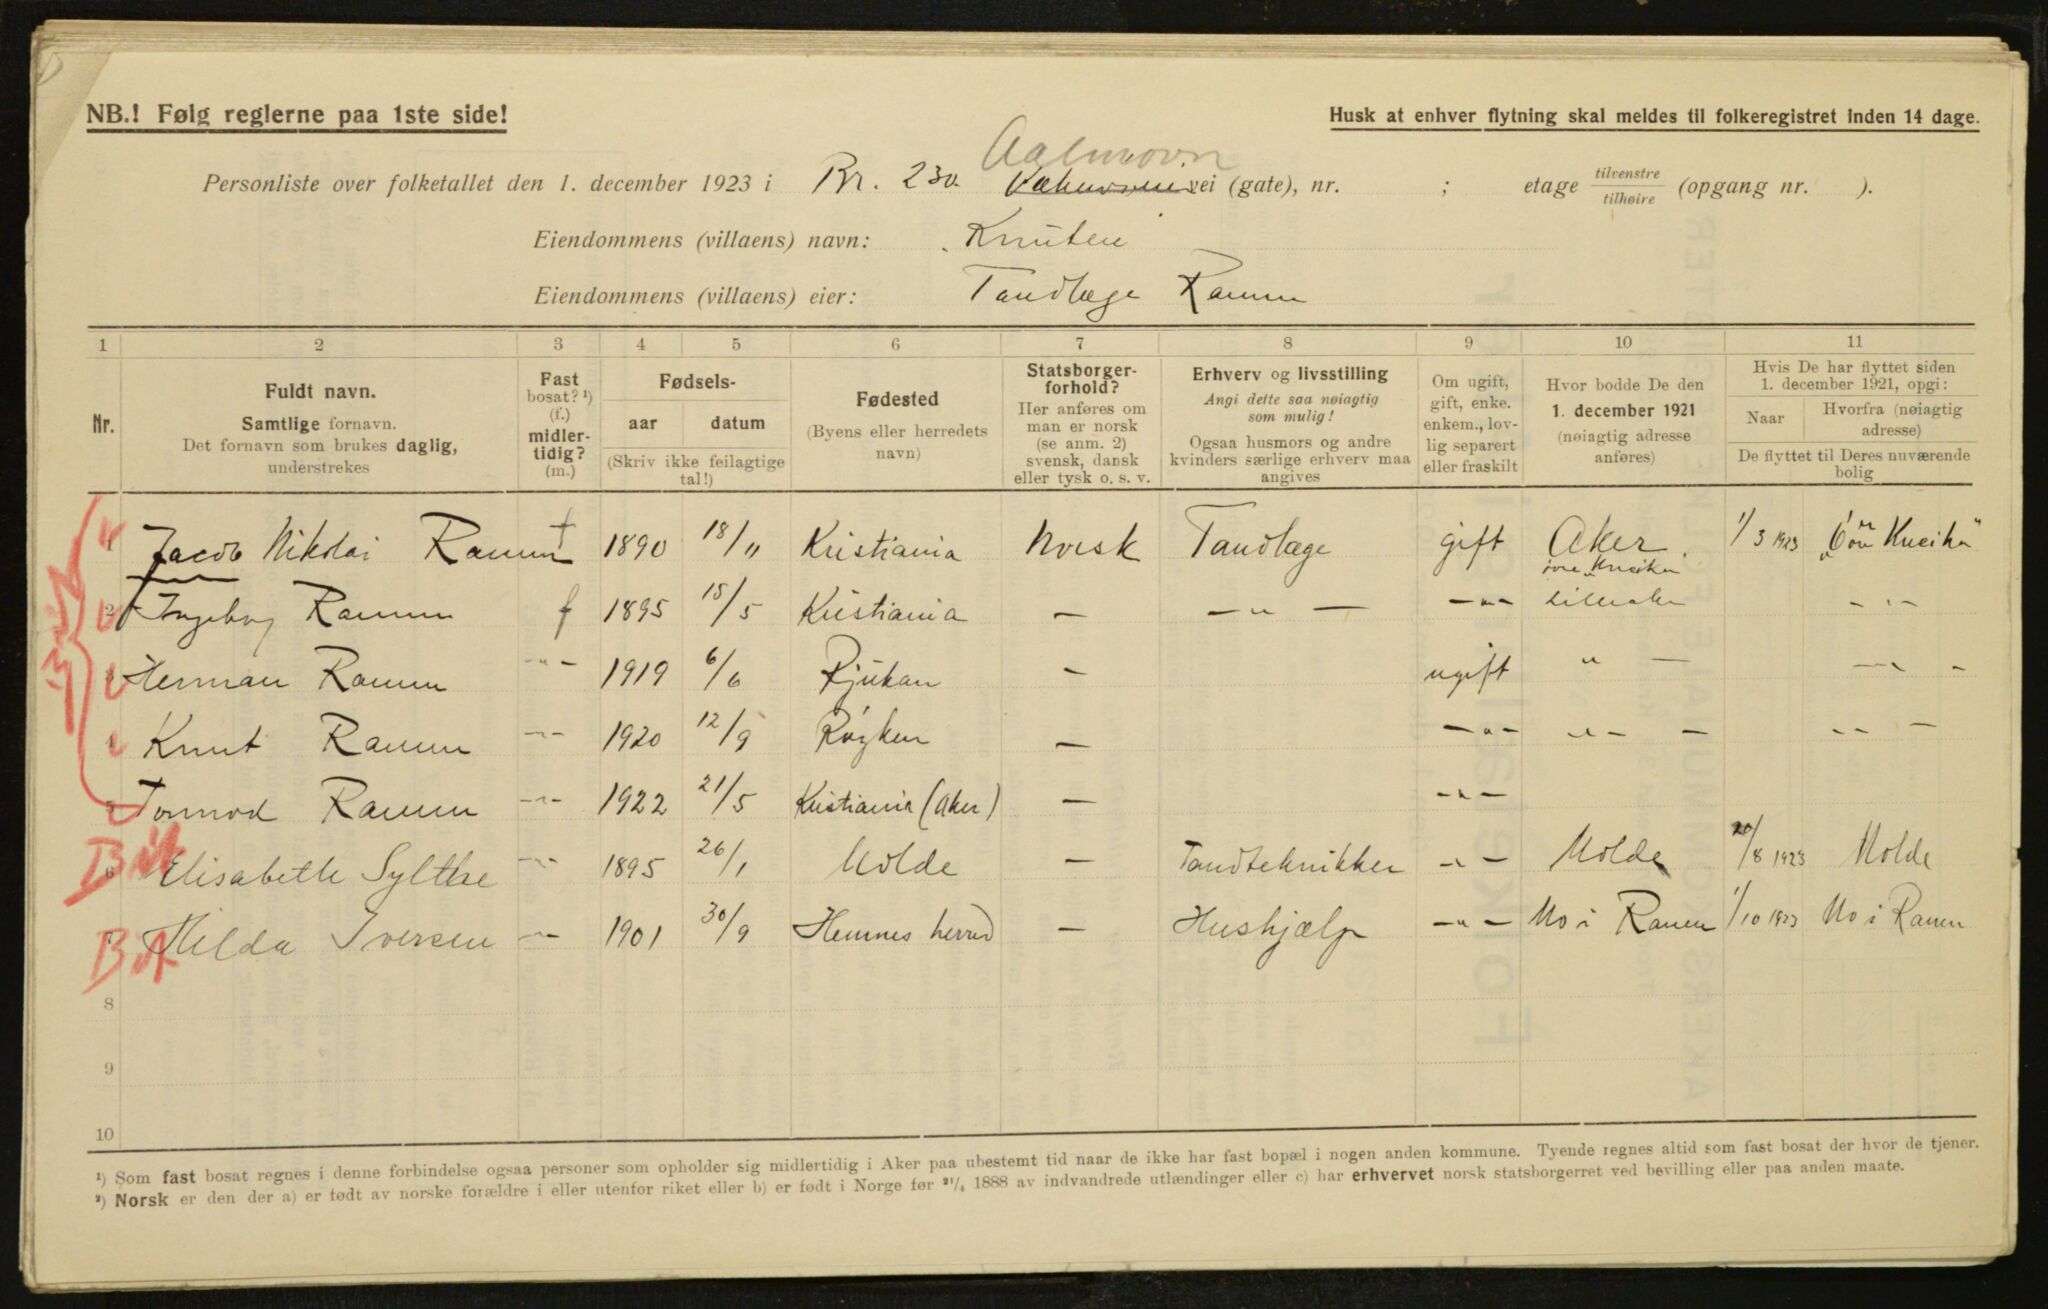 NB.! Følg reglerne paa 1ste side!
Husk at enhver flytning skal meldes til folkeregistret inden 14 dage.
Personliste over folketallet den 1. december 1923 i Br. 230. vei (gate), nr. ; etage tilvenstre / tilhøire (opgang nr. ).
Eiendommens (villaens) navn: Knuten
Eiendommens (villaens) eier: Tandlæge Ramm
1 2 3 4 5 6 7 8 9 10 11
Nr.
Fuldt navn.
Samtlige fornavn.
Det fornavn som brukes daglig,
understrekes
Fast
bosat? ¹)
(f.)
midler-
tidig?
(m.)
Fødsels-
aar datum
(Skriv ikke feilagtige
tal!)
Fødested
(Byens eller herredets
navn)
Statsborger-
forhold?
Her anføres om
man er norsk
(se anm. 2)
svensk, dansk
eller tysk o. s. v.
Erhverv og livsstilling
Angi dette saa nøiagtig
som mulig!
Ogsaa husmors og andre
kvinders særlige erhverv maa
angives
Om ugift,
gift, enke.
enkem., lov-
lig separert
eller fraskilt
Hvor bodde De den
1. december 1921
(nøiagtig adresse
anføres)
Hvis De har flyttet siden
1. december 1921, opgi:
Naar
Hvorfra (nøiagtig
adresse)
De flyttet til Deres nuværende
bolig
1 Jacob Nikolai Ramm f 1890 18/11 Kristiania Norsk Tandlæge gift Aker. 1/3 1923
2 Ingeborg Ramm f 1895 15/5 Kristiania — — " — - " - Lilleaker - " -
3 Herman Ramm - " - 1919 6/6 Rjukan — ugift " — — " -
4 Knut Ramm - " - 1920 12/9 Røyken — - " - - " - - - " -
5 Tormod Ramm - " - 1922 21/5 Kristiania (Aker) — - " -
6 Elisabeth Sylthe - " - 1895 26/1 Molde — Tandtekniker - " - Molde 20/8 1923 Molde
7 Hilda Iversen - " - 1901 30/9 Hemnes herred — Hushjælp - " - Mo i Ranen 1/10 1923 Mo i Ranen
8
9
10
¹) Som fast bosat regnes i denne forbindelse ogsaa personer som opholder sig midlertidig i Aker paa ubestemt tid naar de ikke har fast bopæl i nogen anden kommune. Tyende regnes altid som fast bosat der hvor de tjener.
²) Norsk er den der a) er født av norske forældre i eller utenfor riket eller b) er født i Norge før ²¹/₄ 1888 av indvandrede utlændinger eller c) har erhvervet norsk statsborgerret ved bevilling eller paa anden maate.